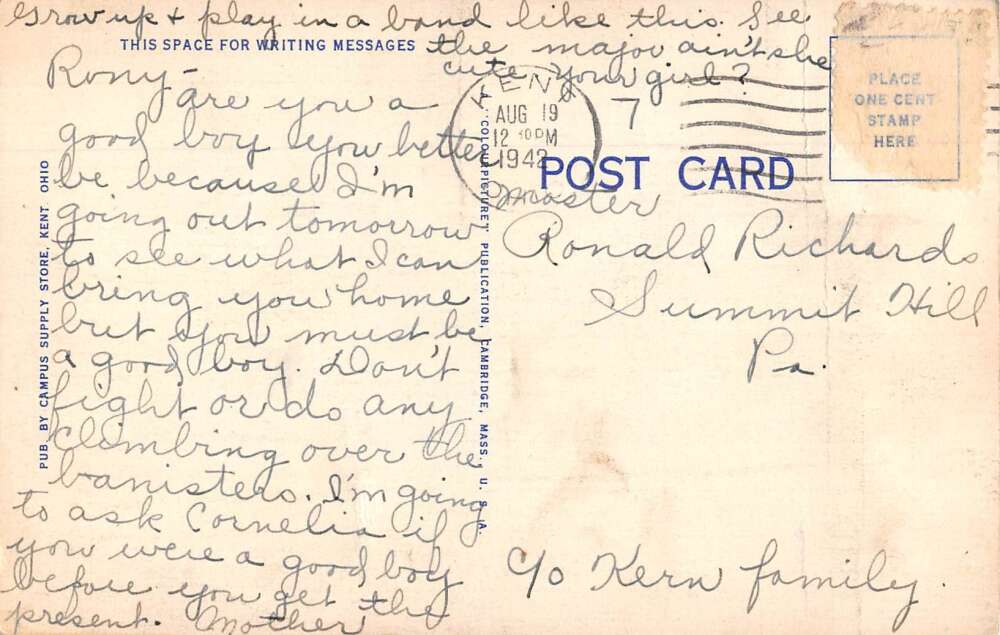 Grow up + play in a band like this. See
the major ain't she
cute your girl?
THIS SPACE FOR WRITING MESSAGES
Rony-
are you a
good boy you better
be because I'm
going out tomorrow
to see what I can
bring you home
but you must be
a good boy. Don't
fight or do any
climbing over the
banisters. I'm going
to ask Cornelia if
you were a good boy
before you get the
present. Mother
PUB. BY CAMPUS SUPPLY STORE, KENT, OHIO
"COLOURPICTURE" PUBLICATION, CAMBRIDGE, MASS., U. S. A.
KENT
AUG 19
12 30 PM
1942
7
PLACE
ONE CENT
STAMP
HERE
POST CARD
Master
Ronald Richards
Summit Hill
Pa.
c/o Kern family.